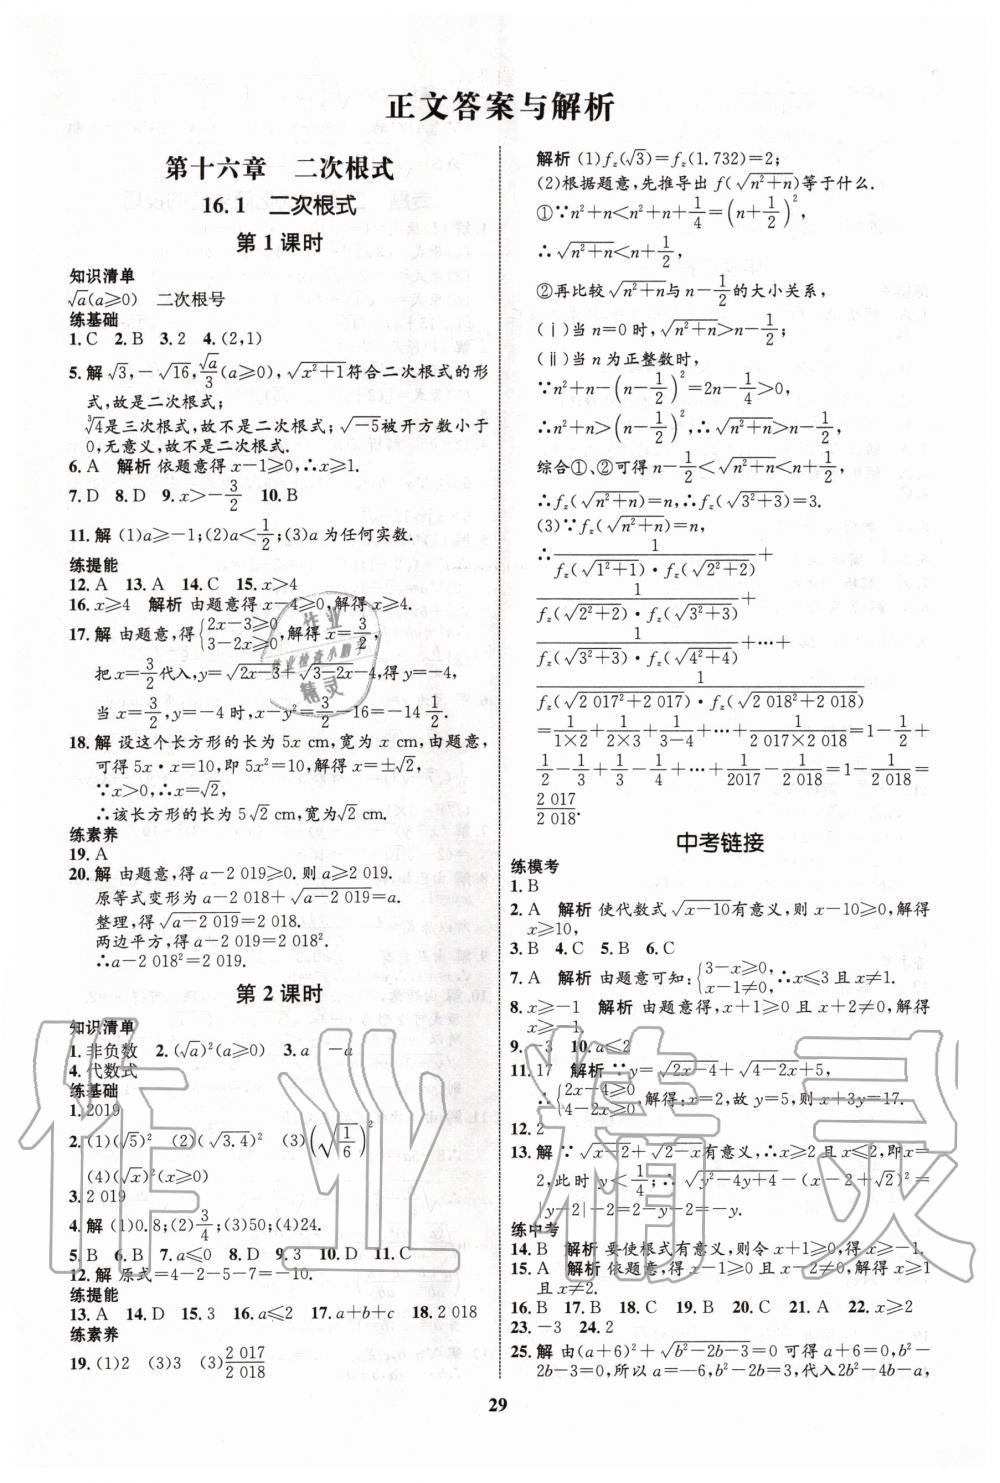 正文答案与解析
第十六章　二次根式
16.1　二次根式
第1课时
知识清单
√a(a≥0)　二次根号
练基础
1.C　2.B　3.2　4.(2,1)
5.解 √3,-√16,√a/3(a≥0),√(x²+1)符合二次根式的形
式,故是二次根式;
³√4是三次根式,故不是二次根式;√-5被开方数小于
0,无意义,故不是二次根式.
6.A　解析 依题意得x-1≥0,∴x≥1.
7.D　8.D　9.x>-3/2　10.B
11.解 (1)a≥-1;(2)a<1/2;(3)a为任何实数.
练提能
12.A　13.A　14.C　15.x>4
16.x≥4　解析 由题意得x-4≥0,解得x≥4.
17.解 由题意,得{2x-3≥0 3-2x≥0,解得x=3/2,
把x=3/2代入,y=√(2x-3)+√(3-2x)-4,得y=-4,
当x=3/2,y=-4时,x-y²=3/2-16=-14 1/2.
18.解 设这个长方形的长为5x cm,宽为x cm,由题意,
可得5x·x=10,即5x²=10,解得x=±√2,
∵x>0,∴x=√2,
∴该长方形的长为5√2 cm,宽为√2 cm.
练素养
19.A
20.解 由题意,得a-2 019≥0.则a≥2 019.
原等式变形为a-2 018+√(a-2 019)=a.
整理,得√(a-2 019)=2 018.
两边平方,得a-2 019=2 018².
∴a-2 018²=2 019.
第2课时
知识清单
1.非负数　2.(√a)²(a≥0)　3.a　-a
4.代数式
练基础
1.2019
2.(1)(√5)²　(2)(√3.4)²　(3)(√(1/6))²
(4)(√x)²(x≥0)
3.2 019
4.解 (1)0.8;(2)3/4;(3)50;(4)24.
5.B　6.B　7.a≤0　8.D　9.3　10.D　11.C
12.解 原式=4-2-5-7=-10.
练提能
13.A　14.D　15.3　16.a≤2　17.a+b+c　18.2 018
练素养
19.(1)2　(3)3　(3)2 017/2 018
解析 (1)f_z(√3)=f_z(1.732)=2;
(2)根据题意,先推导出f(√(n²+n))等于什么.
①∵n²+n<n²+n+1/4=(n+1/2)²,
∴√(n²+n)<n+1/2,
②再比较√(n²+n)与n-1/2的大小关系,
(ⅰ)当n=0时,√(n²+n)>n-1/2;
(ⅱ)当n为正整数时,
∵n²+n-(n-1/2)²=2n-1/4>0,
∴n²+n>(n-1/2)²,∴√(n²+n)>n-1/2,
综合①、②可得n-1/2<√(n²+n)<n+1/2,
∴f_z(√(n²+n))=n,∴f_z(√(3²+3))=3.
(3)∵f_z(√(n²+n))=n,
∴1/(f_z(√(1²+1))·f_z(√(2²+2)))+
1/(f_z(√(2²+2))·f_z(√(3²+3)))+
1/(f_z(√(3²+3))·f_z(√(4²+4)))+…+
1/(f_z(√(2 017²+2 017))·f_z(√(2 018²+2 018)))
=1/(1×2)+1/(2×3)+1/(3-4)+…+1/(2 017×2 018)=1/1-1/2+
1/2-1/3+1/3-1/4+…+1/2017-1/2 018=1-1/2 018=
2 017/2 018.
中考链接
练模考
1.B
2.A　解析 使代数式√(x-10)有意义,则x-10≥0,解得
x≥10,
3.B　4.C　5.B　6.C
7.A　解析 由题意可知:{3-x≥0, x-1≠0,∴x≤3且x≠1.
8.x≥-1　解析 由题意得,x+1≥0且x+2≠0,解得
x≥-1.
9.-3　10.a≤2
11.17　解析 ∵y=√(2x-4)+√(4-2x)+5,
∴{2x-4≥0 4-2x≥0,解得:x=2,故y=5,则x+3y=17.
12.2
13.解 ∵√(x-2)+√(2-x)有意义,∴x≥2且x≤2,∴x=
2,此时y<1/4;∴√(y²-4y+4)-(x-2+√2)²=
|y-2|-2=2-y-2=-y.
练中考
14.B　解析 要使根式有意义,则令x+1≥0,得x≥-1.
15.A　解析 依题意,得x+1≥0且x-2≠0,解得x≥-1
且x≠2.
16.B　17.B　18.B　19.B　20.C　21.A　22.x≥2
23.-3　24.2
25.解 由(a+6)²+√(b²-2b-3)=0可得a+6=0,b²-
2b-3=0,所以a=-6,b²-2b=3,代入2b²-4b-a,
29
作业
作业检查小助手
精灵
作业精灵